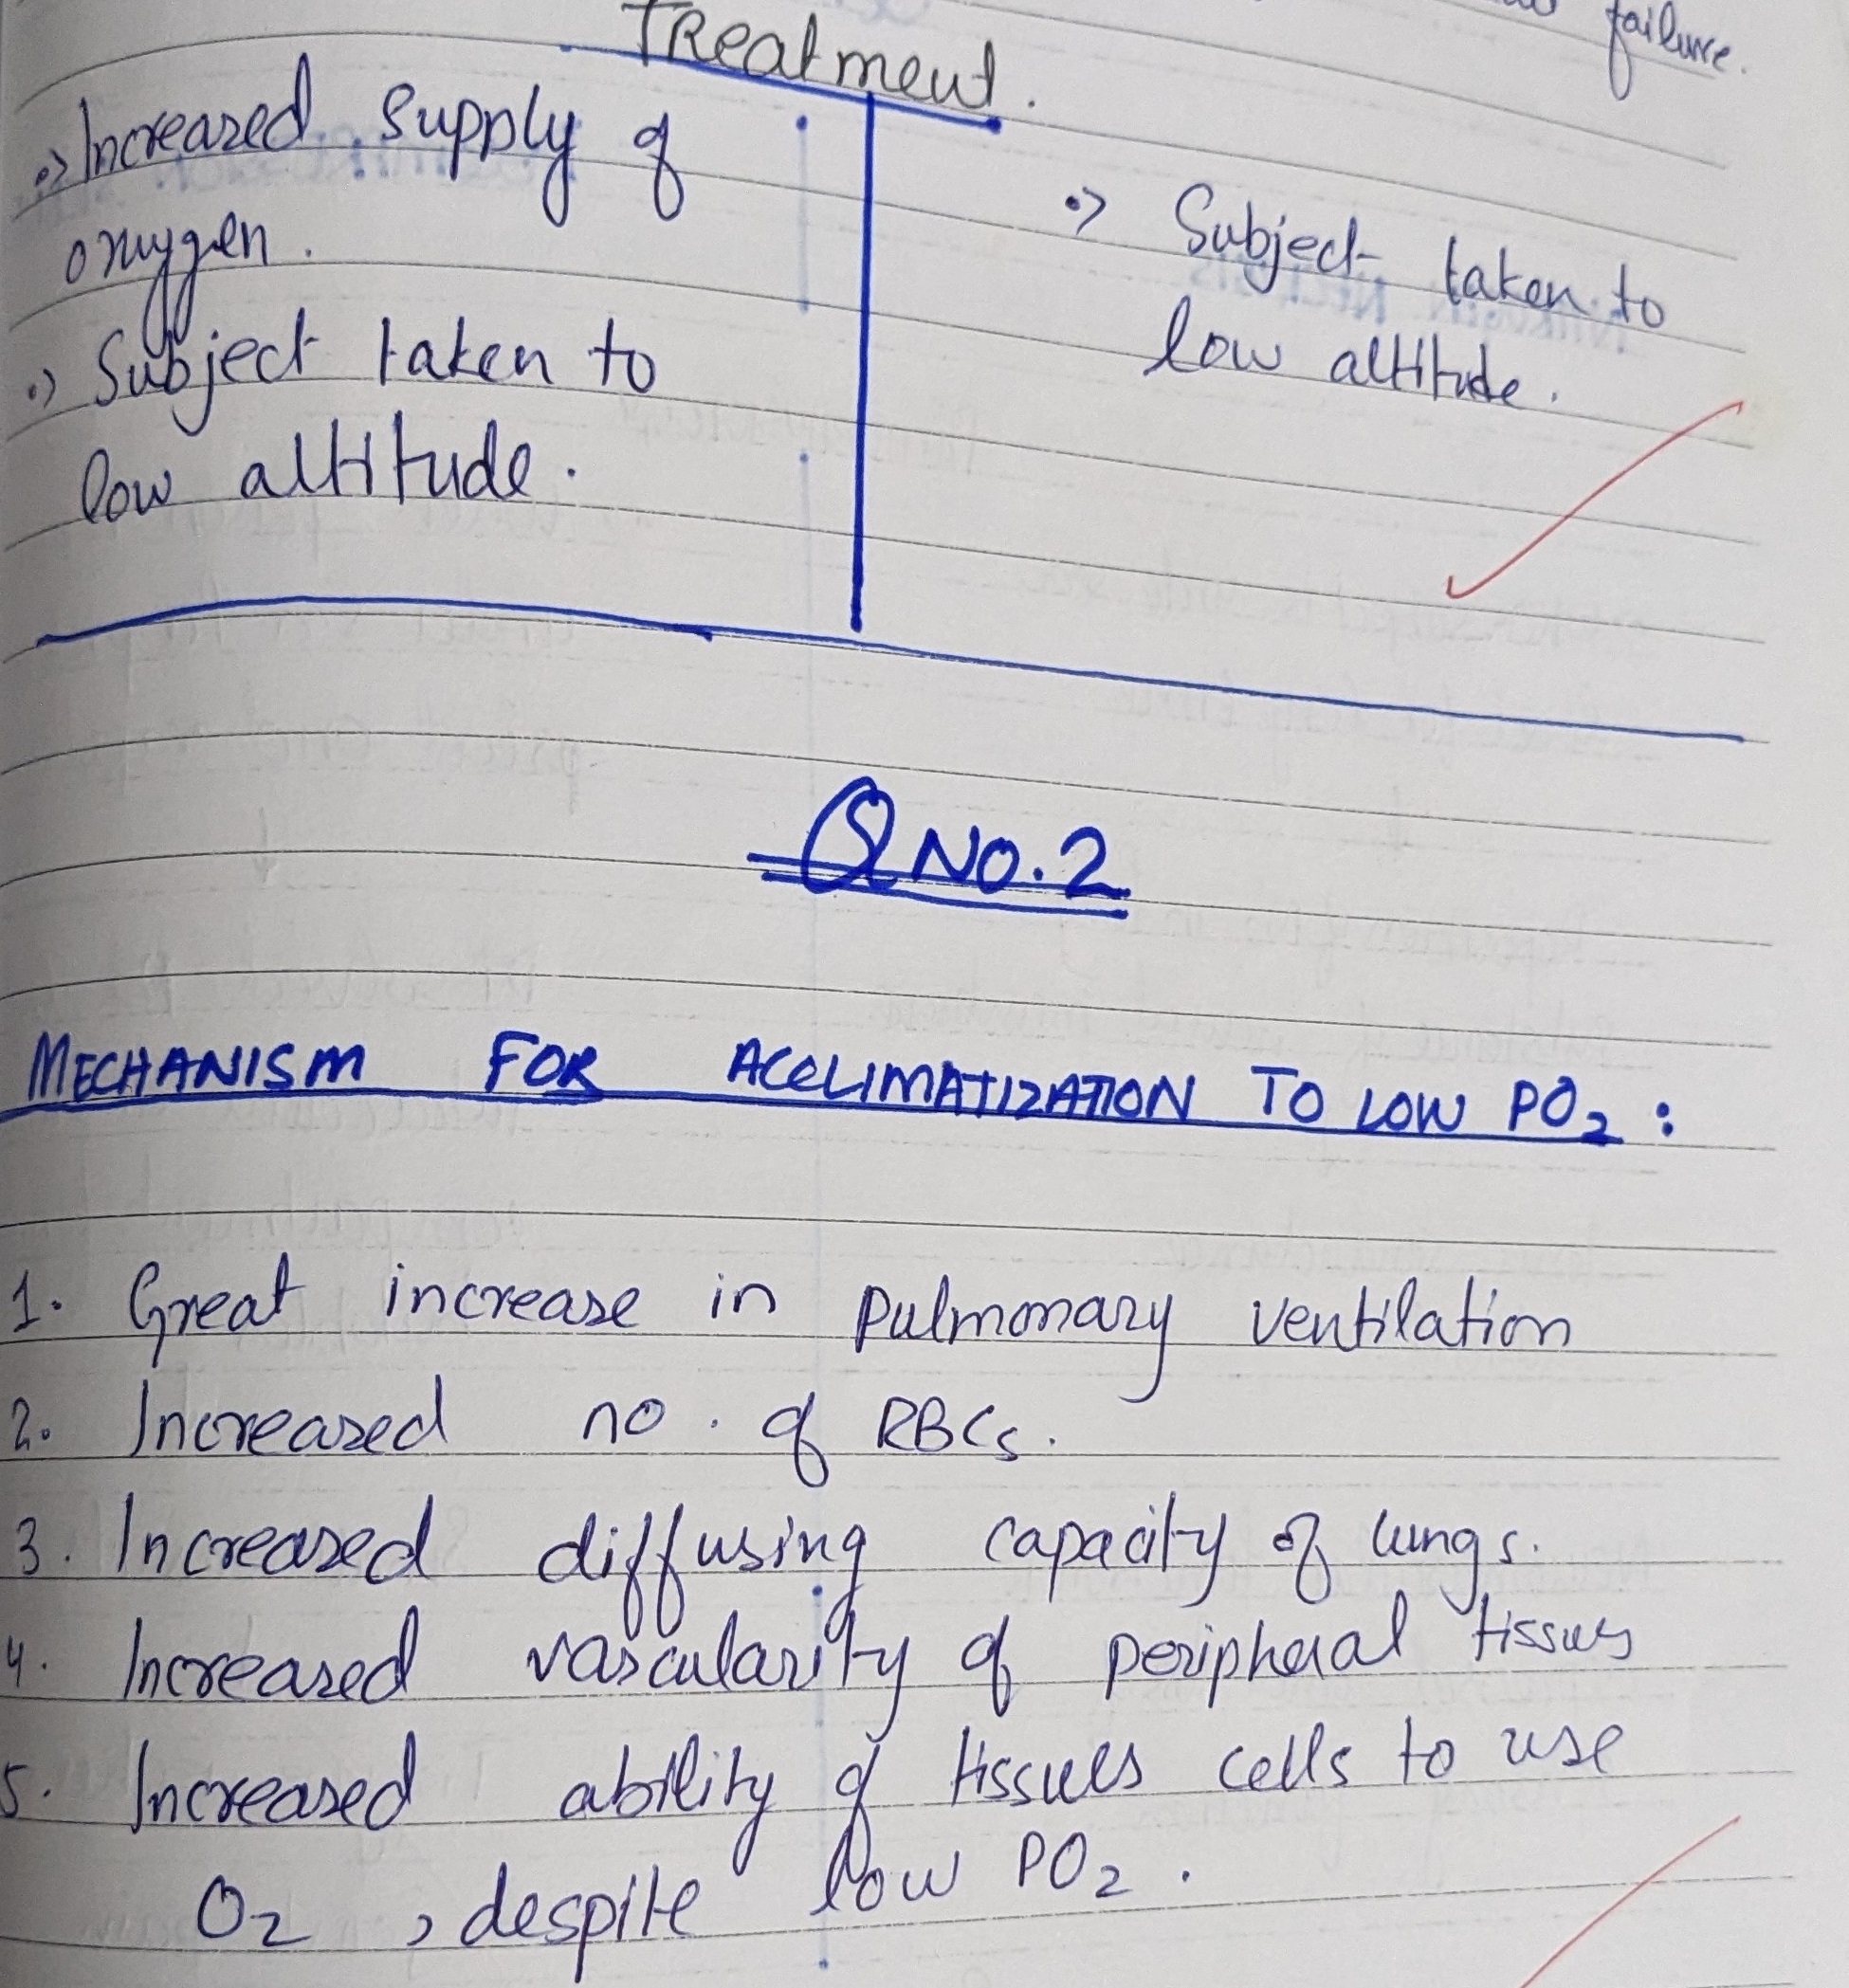 failure.
Treatment.
•> Increased supply of
oxygen.
•> Subject taken to
low altitude.
•> Subject taken to
low altitude.
Q NO.2
MECHANISM FOR ACCLIMATIZATION TO LOW PO₂ :
1. Great increase in pulmonary ventilation
2. Increased no. of RBCs.
3. Increased diffusing capacity of lungs.
4. Increased vascularity of peripheral tissues
5. Increased ability of tissues cells to use
O₂, despite low PO₂.